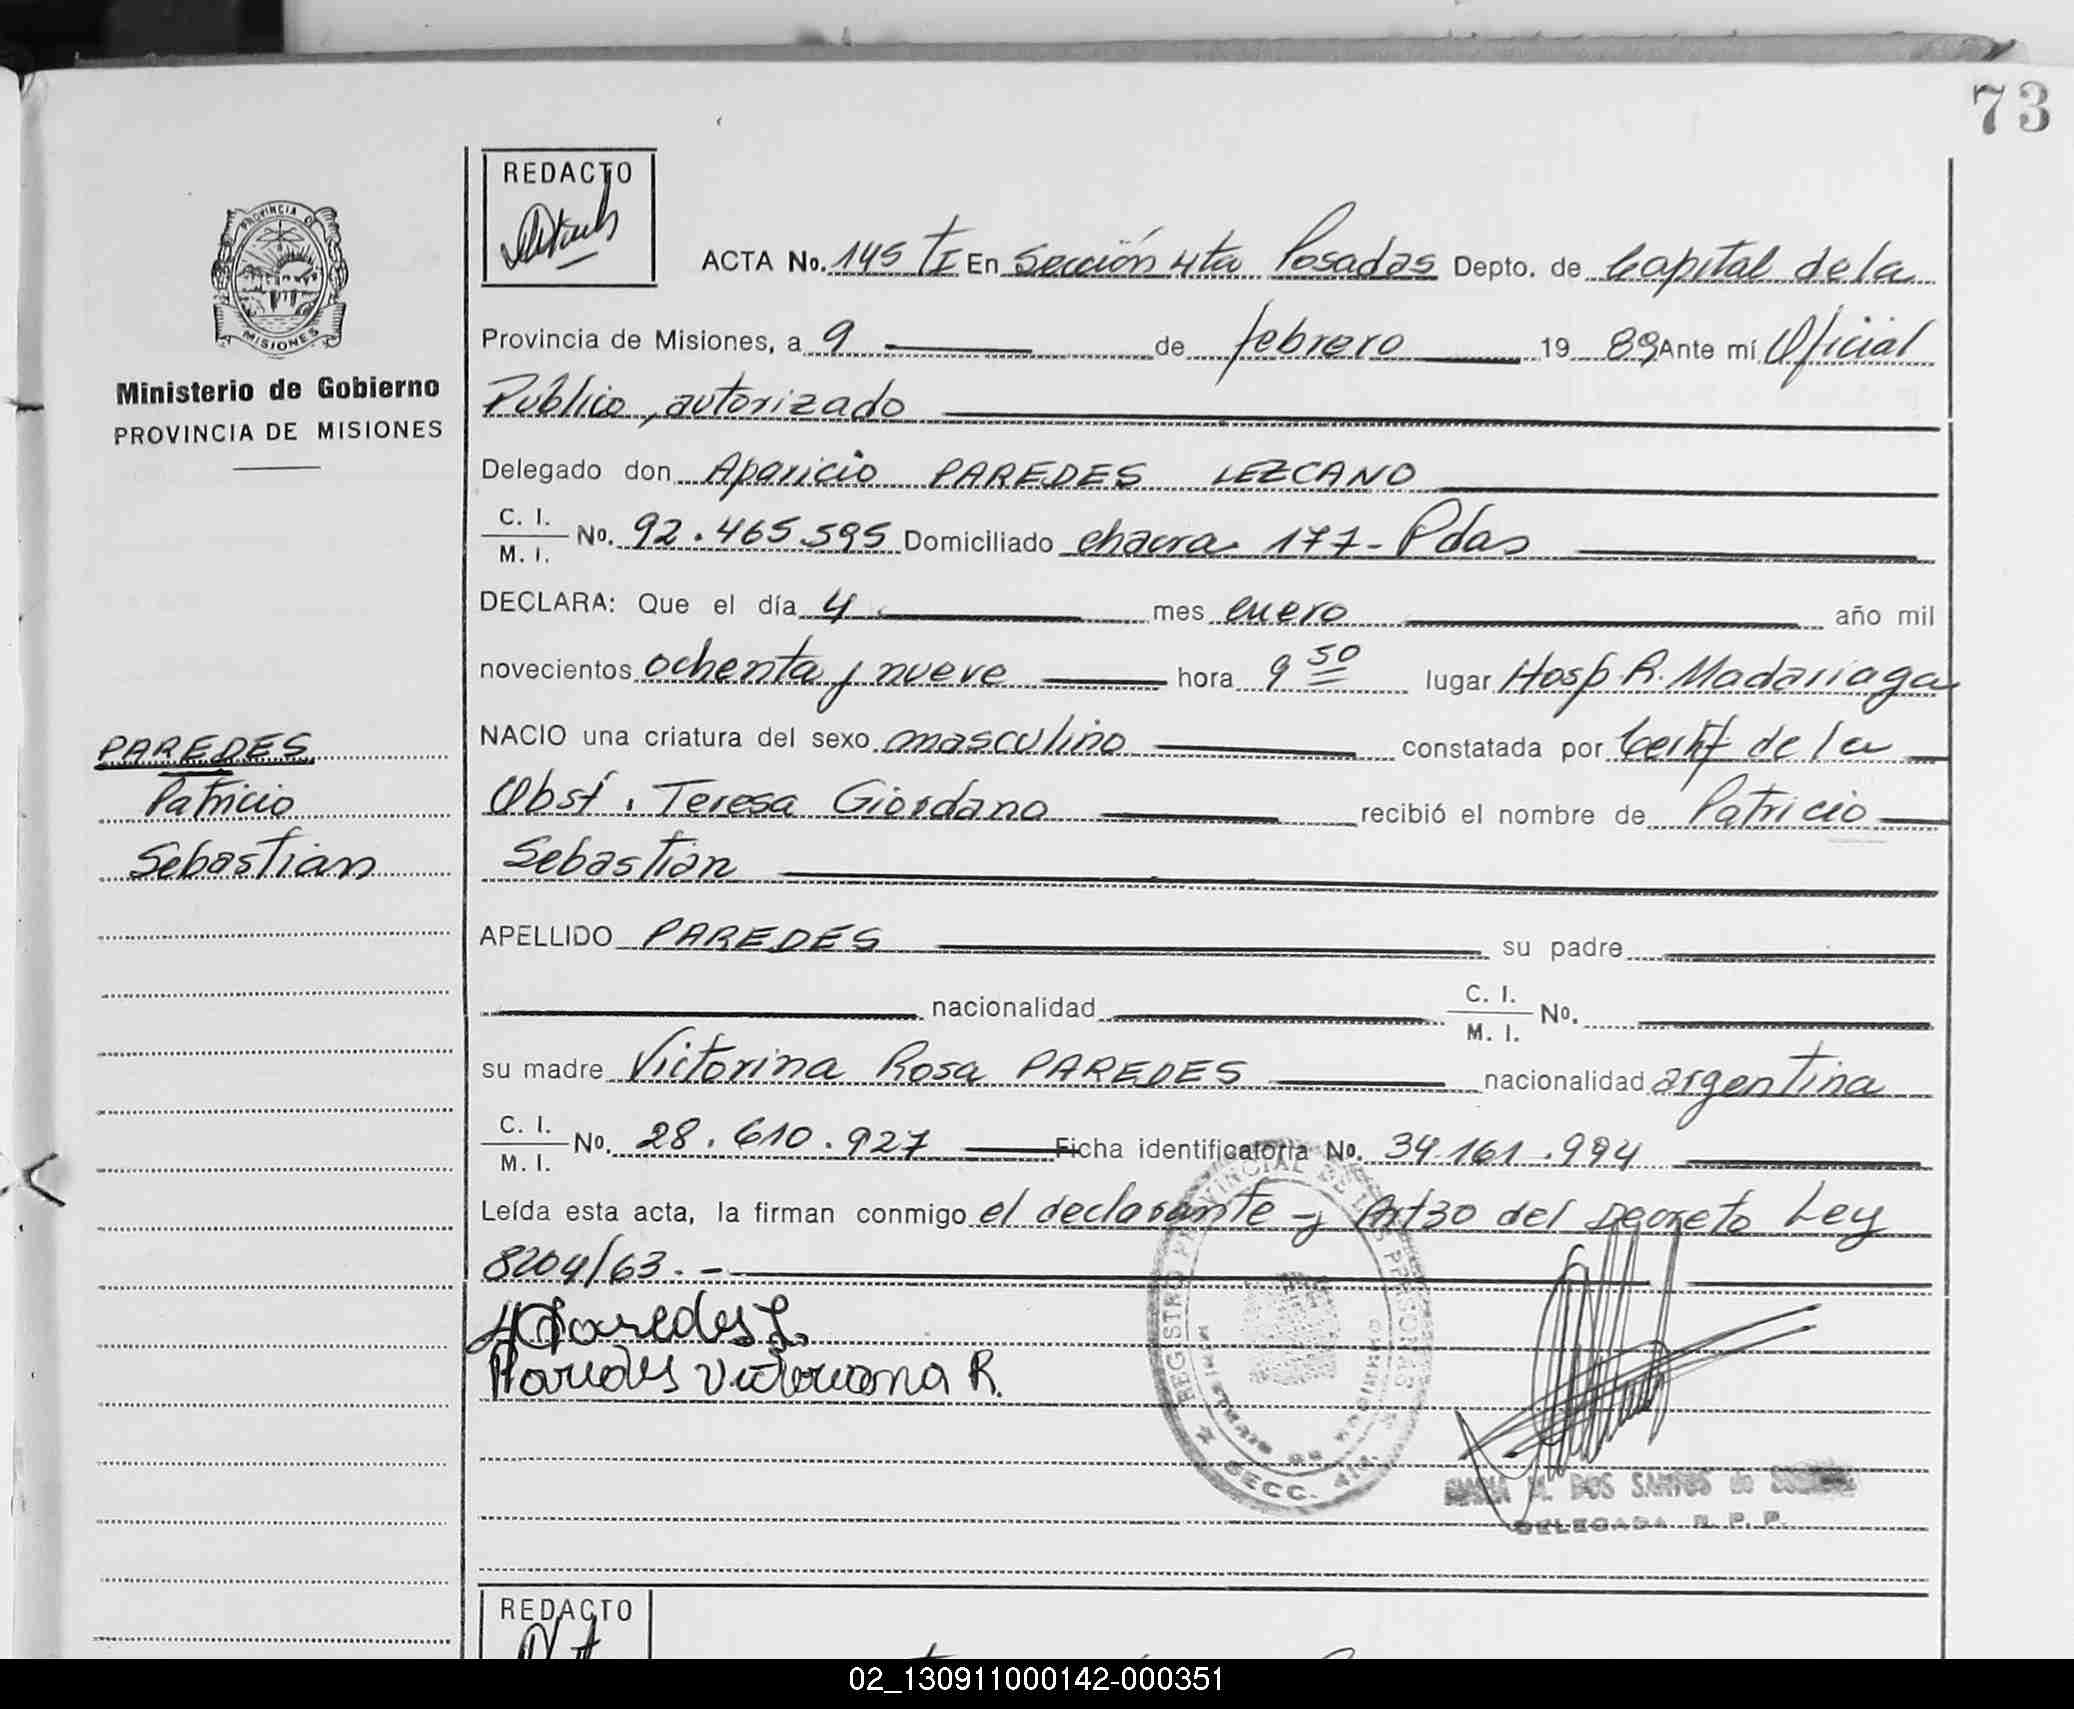 73
REDACTO
PROVINCIA DE
MISIONES
Ministerio de Gobierno
PROVINCIA DE MISIONES
ACTA No. 145 TI En Sección 4ta Posadas Depto. de Capital de la
Provincia de Misiones, a 9 de febrero 1989 Ante mí Oficial
Público, autorizado
Delegado don Aparicio PAREDES LEZCANO
C. I.
M. I. No. 92.465.595 Domiciliado chacra 177- Pdas
DECLARA: Que el día 4 mes enero año mil
novecientos ochenta y nueve hora 9 50 lugar Hosp. R. Madariaga
NACIO una criatura del sexo masculino constatada por Certif de la
Obst. Teresa Giordano recibió el nombre de Patricio
Sebastian
PAREDES
Patricio
Sebastian
APELLIDO PAREDES su padre
nacionalidad C. I.
M. I. No.
su madre Victorina Rosa PAREDES nacionalidad argentina
C. I.
M. I. No. 28.610.927 Ficha identificatoria No. 34.161.994
Leída esta acta, la firman conmigo el declarante y Art 30 del Decreto Ley
8204/63.-
Paredes L.
Paredes Victoriana R.
REGISTRO PROVINCIAL DE LAS PERSONAS
SECC. 4ta.
MARIA M. DOS SANTOS de
DELEGADA R. P. P.
REDACTO
02_130911000142-000351